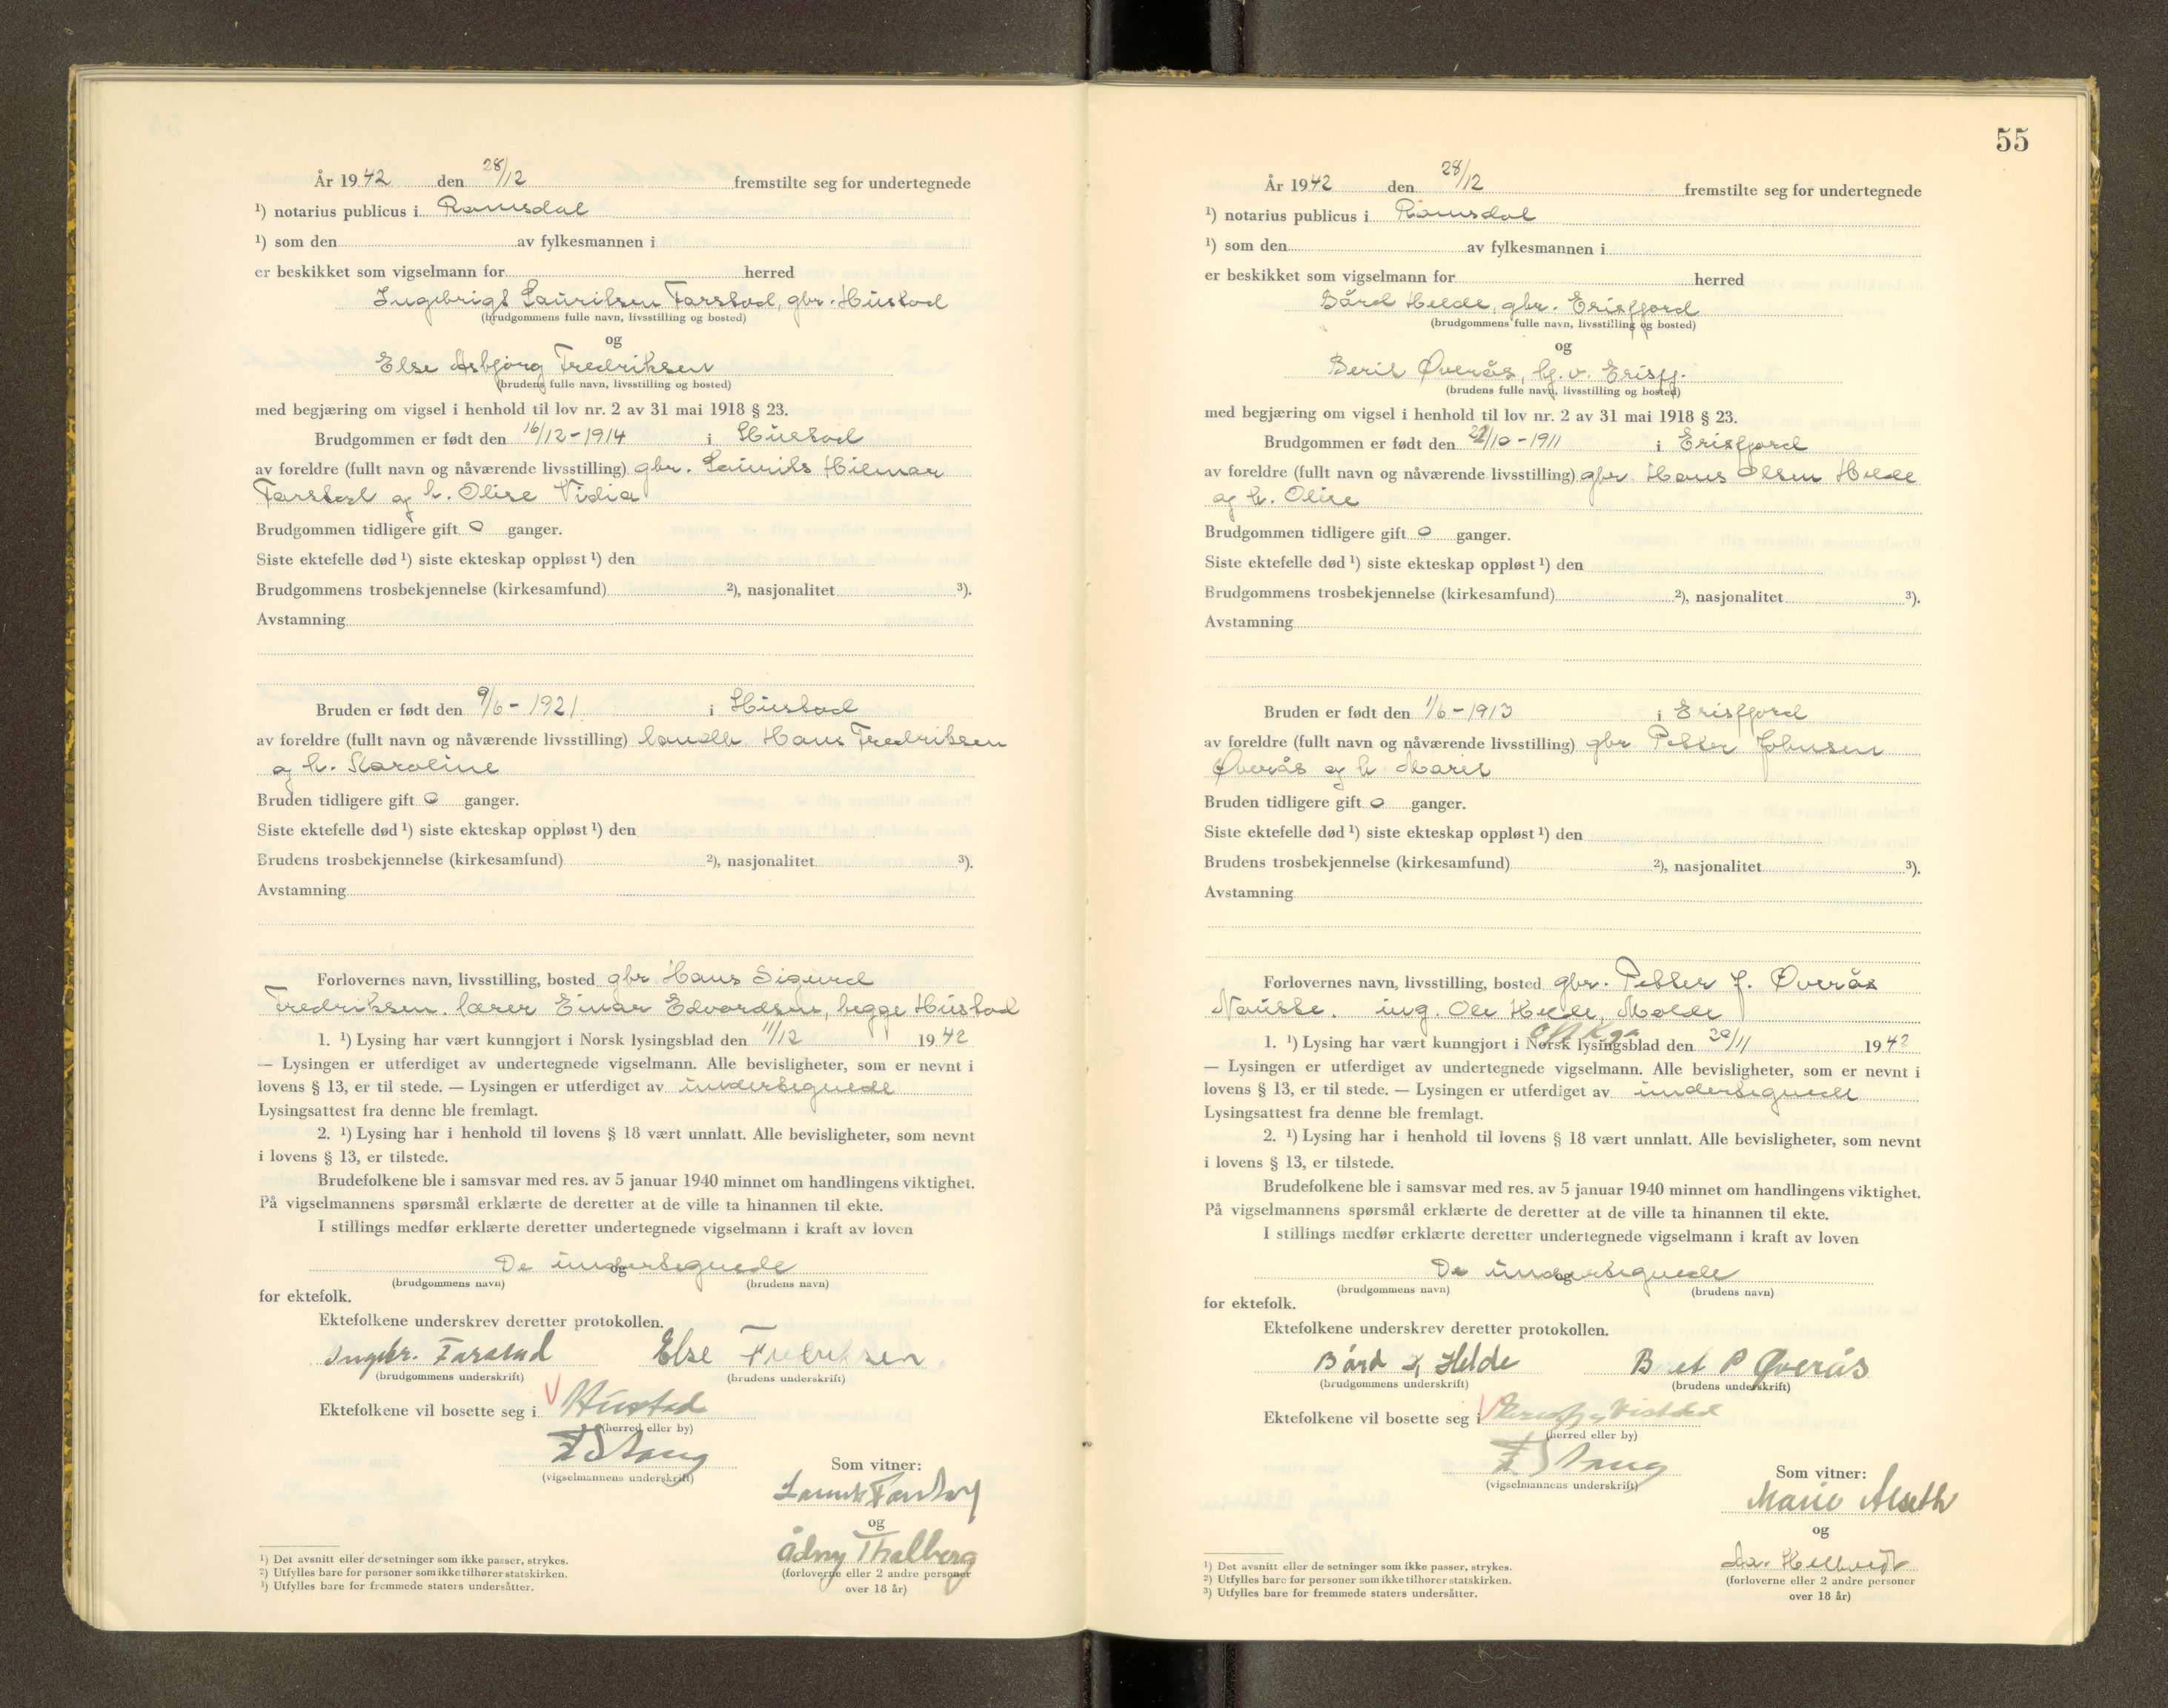 År 1942 den 28/12 fremstilte seg for undertegnede
¹) notarius publicus i Romsdal
¹) som den av fylkesmannen i
er beskikket som vigselmann for herred
Ingebrigt Lauritsen Farstad, gbr. Hustad
(brudgommens fulle navn, livsstilling og bosted)
og
Else Asbjørg Fredriksen
(brudens fulle navn, livsstilling og bosted)
med begjæring om vigsel i henhold til lov nr. 2 av 31 mai 1918 § 23.
Brudgommen er født den 16/12-1914 i Hustad
av foreldre (fullt navn og nåværende livsstilling) gbr. Laurits Hilmar
Farstad og h. Olise Vidia
Brudgommen tidligere gift 0 ganger.
Siste ektefelle død ¹) siste ekteskap oppløst ¹) den
Brudgommens trosbekjennelse (kirkesamfund) ²), nasjonalitet ³).
Avstamning
Bruden er født den 9/6-1921 i Hustad
av foreldre (fullt navn og nåværende livsstilling) landh Hans Fredriksen
og h. Karoline
Bruden tidligere gift 0 ganger.
Siste ektefelle død ¹) siste ekteskap oppløst ¹) den
Brudens trosbekjennelse (kirkesamfund) ²), nasjonalitet ³).
Avstamning
Forlovernes navn, livsstilling, bosted gbr Hans Sigurd
Fredriksen. lærer Einar Edvardsen, begge Hustad
1. ¹) Lysing har vært kunngjort i Norsk lysingsblad den 11/12 1942
— Lysingen er utferdiget av undertegnede vigselmann. Alle bevisligheter, som er nevnt i
lovens § 13, er til stede. — Lysingen er utferdiget av undertegnede
Lysingsattest fra denne ble fremlagt.
2. ¹) Lysing har i henhold til lovens § 18 vært unnlatt. Alle bevisligheter, som nevnt
i lovens § 13, er tilstede.
Brudefolkene ble i samsvar med res. av 5 januar 1940 minnet om handlingens viktighet.
På vigselmannens spørsmål erklærte de deretter at de ville ta hinannen til ekte.
I stillings medfør erklærte deretter undertegnede vigselmann i kraft av loven
De undertegnede
og
(brudgommens navn) (brudens navn)
for ektefolk.
Ektefolkene underskrev deretter protokollen.
Ingebr. Farstad Else Fredriksen
(brudgommens underskrift) (brudens underskrift)
Ektefolkene vil bosette seg i Hustad
(herred eller by)
(vigselmannens underskrift)
Som vitner:
og
Ådny Thalberg
(forloverne eller 2 andre personer
over 18 år)
¹) Det avsnitt eller de setninger som ikke passer, strykes.
²) Utfylles bare for personer som ikke tilhører statskirken.
³) Utfylles bare for fremmede staters undersåtter.
55
År 1942 den 28/12 fremstilte seg for undertegnede
¹) notarius publicus i Romsdal
¹) som den av fylkesmannen i
er beskikket som vigselmann for herred
Bård Helde, gbr. Erisfjord
(brudgommens fulle navn, livsstilling og bosted)
og
Berit Øverås, hj. v. Erisfj.
(brudens fulle navn, livsstilling og bosted)
med begjæring om vigsel i henhold til lov nr. 2 av 31 mai 1918 § 23.
Brudgommen er født den /10-1911 i Erisfjord
av foreldre (fullt navn og nåværende livsstilling) gbr Hans Olsen Helde
og h. Olise
Brudgommen tidligere gift 0 ganger.
Siste ektefelle død ¹) siste ekteskap oppløst ¹) den
Brudgommens trosbekjennelse (kirkesamfund) ²), nasjonalitet ³).
Avstamning
Bruden er født den 1/6-1913 i Erisfjord
av foreldre (fullt navn og nåværende livsstilling) gbr Petter Johnsen
Øverås og h Marit
Bruden tidligere gift 0 ganger.
Siste ektefelle død ¹) siste ekteskap oppløst ¹) den
Brudens trosbekjennelse (kirkesamfund) ²), nasjonalitet ³).
Avstamning
Forlovernes navn, livsstilling, bosted gbr. Petter J. Øverås
Nauste. ing. Ole Helde, Molde
1. ¹) Lysing har vært kunngjort i Norsk lysingsblad den /11 1942
— Lysingen er utferdiget av undertegnede vigselmann. Alle bevisligheter, som er nevnt i
lovens § 13, er til stede. — Lysingen er utferdiget av undertegnede
Lysingsattest fra denne ble fremlagt.
2. ¹) Lysing har i henhold til lovens § 18 vært unnlatt. Alle bevisligheter, som nevnt
i lovens § 13, er tilstede.
Brudefolkene ble i samsvar med res. av 5 januar 1940 minnet om handlingens viktighet.
På vigselmannens spørsmål erklærte de deretter at de ville ta hinannen til ekte.
I stillings medfør erklærte deretter undertegnede vigselmann i kraft av loven
De undertegnede
og
(brudgommens navn) (brudens navn)
for ektefolk.
Ektefolkene underskrev deretter protokollen.
Bård Helde Beret P Øverås
(brudgommens underskrift) (brudens underskrift)
Ektefolkene vil bosette seg i
(herred eller by)
(vigselmannens underskrift)
Som vitner:
Marie Alseth
og
(forloverne eller 2 andre personer
over 18 år)
¹) Det avsnitt eller de setninger som ikke passer, strykes.
²) Utfylles bare for personer som ikke tilhører statskirken.
³) Utfylles bare for fremmede staters undersåtter.